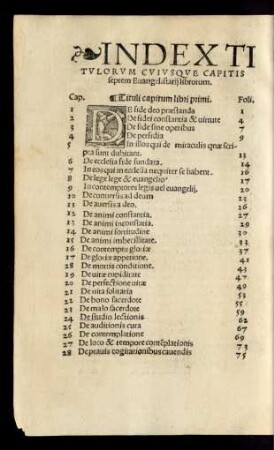 INDEX TI
TVLORVM CVIVSQVE CAPITIS
septem Euangelistarij librorum.
Cap. Tituli capitum libri primi. Foli.
1 DE fide deo præstanda 1
2 De fidei constantia & uirtute 4
3 De fide sine operibus 7
4 De perfidia 9
5 In illos qui de miraculis quæ scri-
pta sunt dubitant. 13
6 De ecclesia fide fundata. 14
7 In eos qui in ecclesia nequiter se habent. 16
8 De lege & euangelio
9 In contemptores legis uel euangelij.
10 De conuersis ad deum
11 De auersis a deo.
12 De animi constantia.
13 De animi inconstantia.
14 De animi fortitudine
15 De animi imbecillitate.
16 De contemptu gloriæ
17 De gloriæ appetione.
18 De mortis conditione.
19 De uitæ cupiditate 47
20 De perfectione uitæ
21 De uita solitaria
22 De bono sacerdote 55
23 De malo sacerdote 59
24 De studio lectionis 62
25 De auditionis cura 65
26 De contemplatione
27 De loco & tempore contẽplationis
28 De prauis cogitationibus cauendis 75